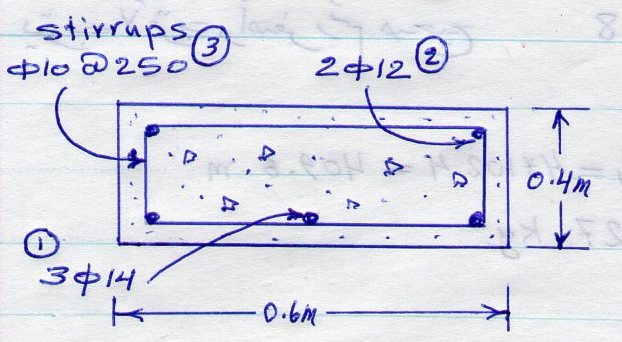 stirrups ③
ϕ10@250
2ϕ12 ②
0.4m
①
3ϕ14
0.6m